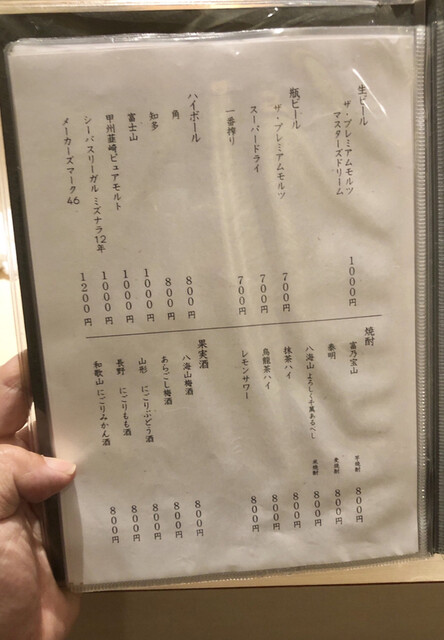 生ビール
ザ・プレミアムモルツ
マスターズドリーム 1000円
瓶ビール
ザ・プレミアムモルツ 700円
スーパードライ 700円
一番搾り 700円
ハイボール
角 800円
知多 800円
富士山 1000円
甲州韮崎ピュアモルト 1000円
シーバスリーガル ミズナラ12年 1000円
メーカーズマーク46 1200円
焼酎
富乃宝山 芋焼酎 800円
泰明 麦焼酎 800円
八海山 よろしく千萬あるべし 米焼酎 800円
抹茶ハイ 800円
烏龍茶ハイ 800円
レモンサワー 800円
果実酒
八海山梅酒 800円
あらごし梅酒 800円
山形 にごりぶどう酒 800円
長野 にごりもも酒 800円
和歌山 にごりみかん酒 800円